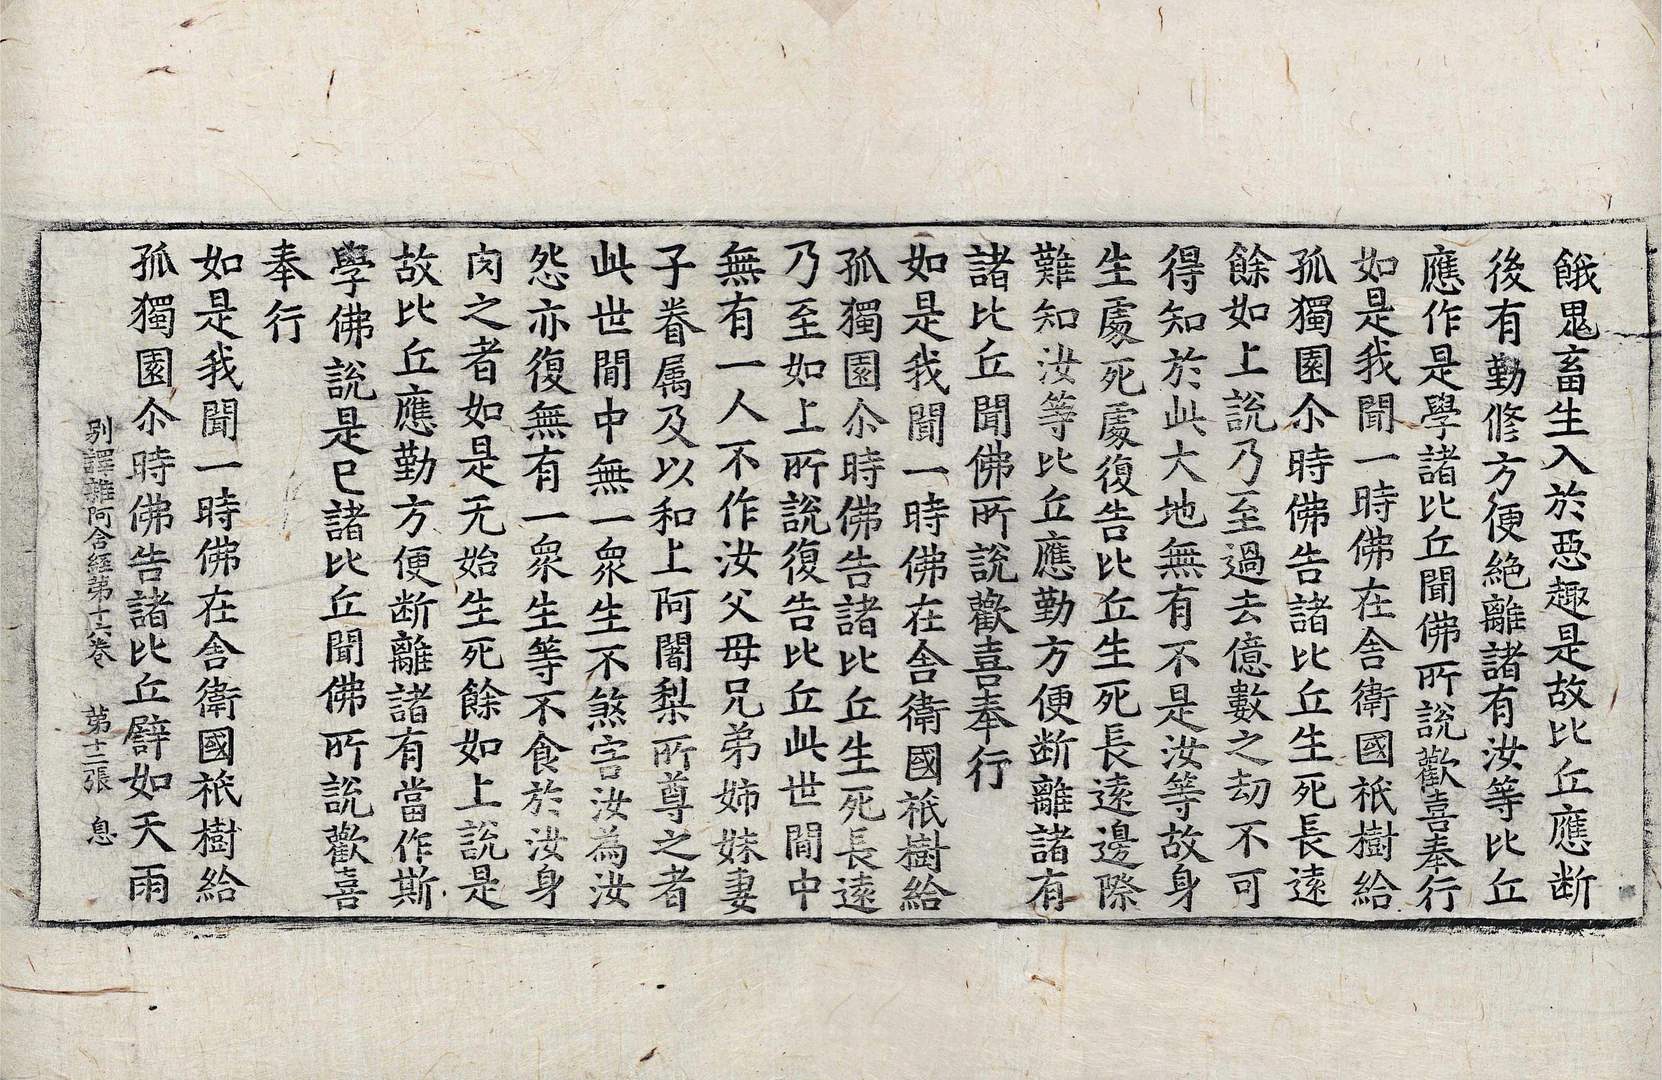 餓鬼畜生入於惡趣是故比丘應断
後有勤修方便絶離諸有汝等比丘
應作是學諸比丘聞佛所說歡喜奉行
如是我聞一時佛在舍衛國祇樹給
孤獨園尒時佛告諸比丘生死長遠
餘如上說乃至過去億數之劫不可
得知於此大地無有不是汝等故身
生處死處復告比丘生死長遠邊際
難知汝等比丘應勤方便断離諸有
諸比丘聞佛所說歡喜奉行
如是我聞一時佛在舍衛國祇樹給
孤獨園尒時佛告諸比丘生死長遠
乃至如上所說復告比丘此世間中
無有一人不作汝父母兄弟姊妹妻
子眷属及以和上阿闍梨所尊之者
此世間中無一衆生不煞害汝為汝
怨亦復無有一衆生等不食於汝身
肉之者如是无始生死餘如上說是
故比丘應勤方便断離諸有當作斯
學佛說是已諸比丘聞佛所說歡喜
奉行
如是我聞一時佛在舍衛國祇樹給
孤獨園尒時佛告諸比丘譬如天雨
别譯雜阿含經第十六卷 第十二張 息